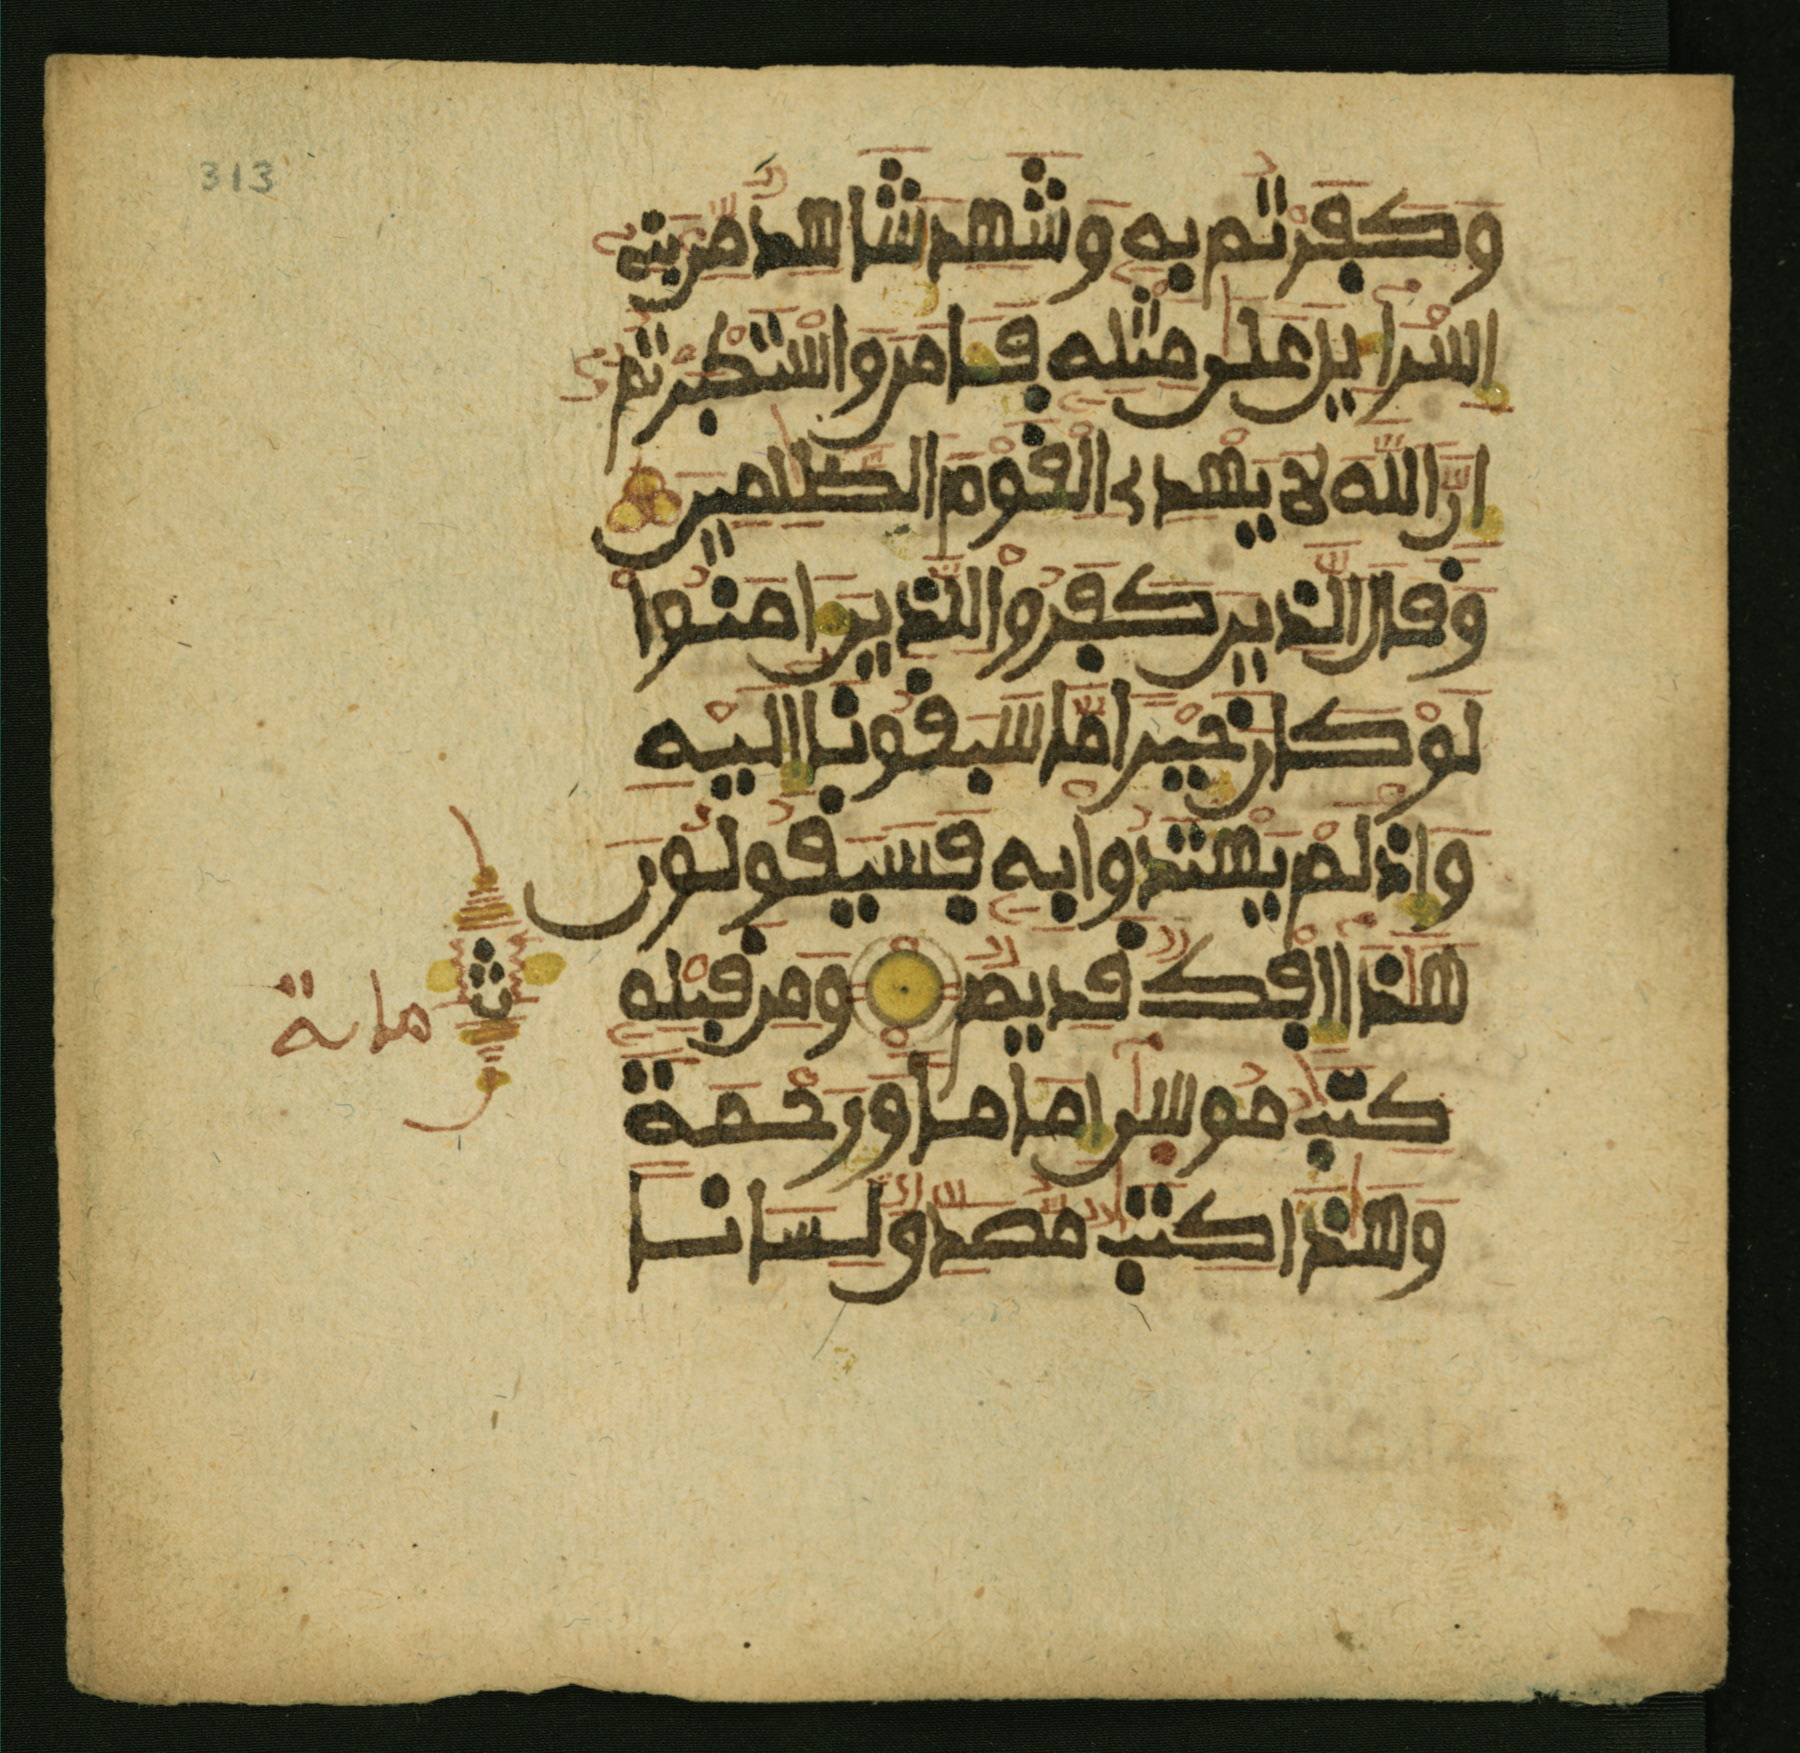 313
وَكَفَرْتُم بِهِ وَشَهِدَ شَاهِدٌ مِّن بَنِے
إِسْرَآءِيلَ عَلَىٰ مِثْلِهِ فَـَٔامَنَ وَاسْتَكْبَرْتُمُ
إِنَّ اللَّهَ لَا يَهْدِى الْقَوْمَ الظَّٰلِمِينَ
وَقَالَ الَّذِينَ كَفَرُوا لِلَّذِينَ ءَامَنُوا
لَوْ كَانَ خَيْرًا مَّا سَبَقُونَا إِلَيْهِ
وَإِذْ لَمْ يَهْتَدُوا بِهِ فَسَيَقُولُونَ
هَٰذَا إِفْكٌ قَدِيمٌ وَمِن قَبْلِهِ
كِتَٰبُ مُوسَىٰ إِمَامًا وَرَحْمَةً
وَهَٰذَا كِتَٰبٌ مُّصَدِّقٌ لِّسَانًا
ث
ماية